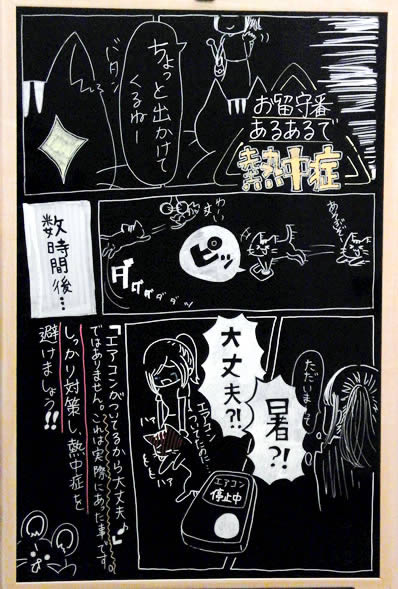 お留守番
あるあるで
熱中症
ちょっと出かけて
くるねー
バタン
あそぶぞ
ピッ
わーい
ダダダダダッ
数時間後…
ただいまー
暑?!
大丈夫?!
エアコン
ついてたのに…
ハァ
ハァ
エアコン
停止中
『エアコンがついてるから大丈夫♪』
ではありません。これは実際にあった事です。
しっかり対策し、熱中症を
避けましょう!!